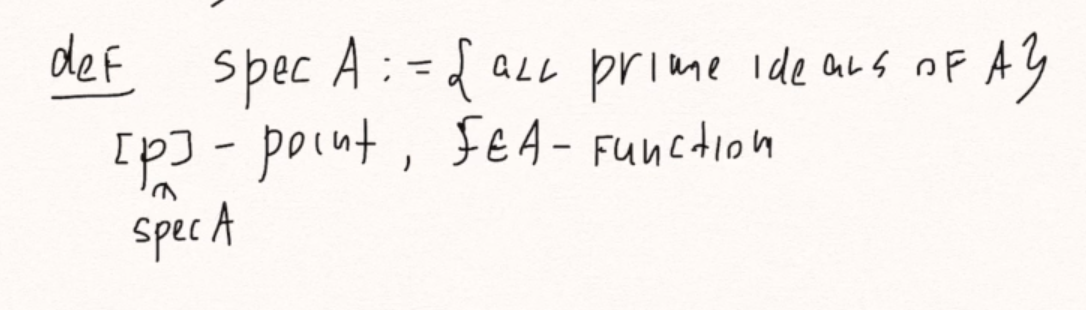 def spec A := { all prime ideals of A}
[p] - point, f∈A - function
∩
spec A